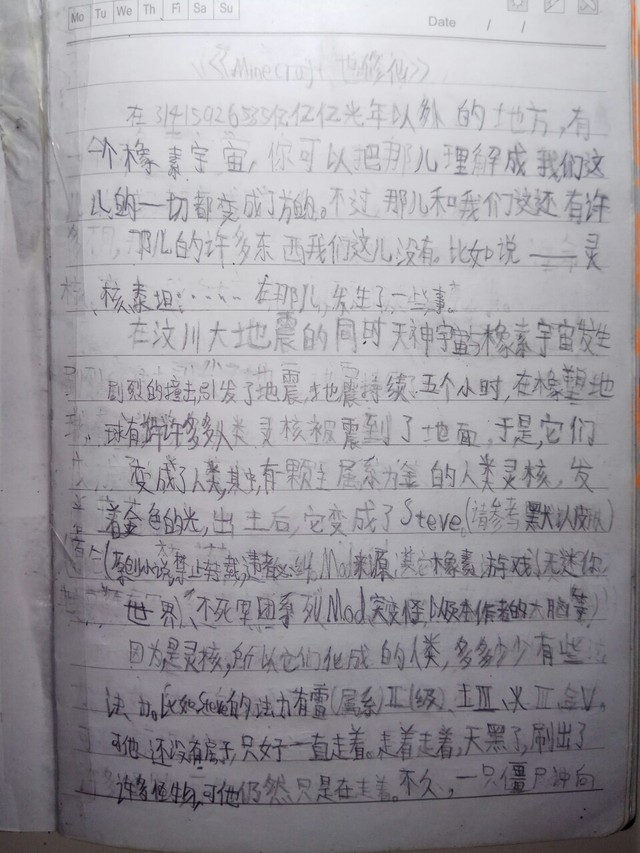 Mo Tu We Th Fri Sa Su
Date / /
《《Minecraft 也修仙》》
在31415926535亿亿亿光年以外的地方,有
个橡素宇宙,你可以把那儿理解成我们这
儿的一切都变成了方的。不过,那儿和我们这还有许
那儿的许多东西我们这儿没有。比如说——灵
核、泰坦…… 在那儿,发生了一些事。
在汶川大地震的同时,天神宇宙与橡素宇宙发生
剧烈的撞击,引发了地震,地震持续五个小时,在橡塑地
球有许许多多人类灵核被震到了地面,于是,它们
变成了人类,其中,有颗主属系为金的人类灵核,发
着金色的光,出土后,它变成了Steve。(请参考默认皮肤)
(原创小说,禁止转载,违者必究,Mod来源:其它橡素游戏、无迷你
世界、不死军团系列Mod、突变怪,以及本作者的大脑等)
因为是灵核,所以它们化成的人类,多多少少有些
法力。比如Steve的法力有雷(属系)Ⅱ(级)、土Ⅲ、火Ⅱ、金Ⅴ。
可他还没有房子,只好一直走着。走着走着,天黑了,刷出了
许多怪物,可他仍然只是在走着。不久,一只僵尸冲向